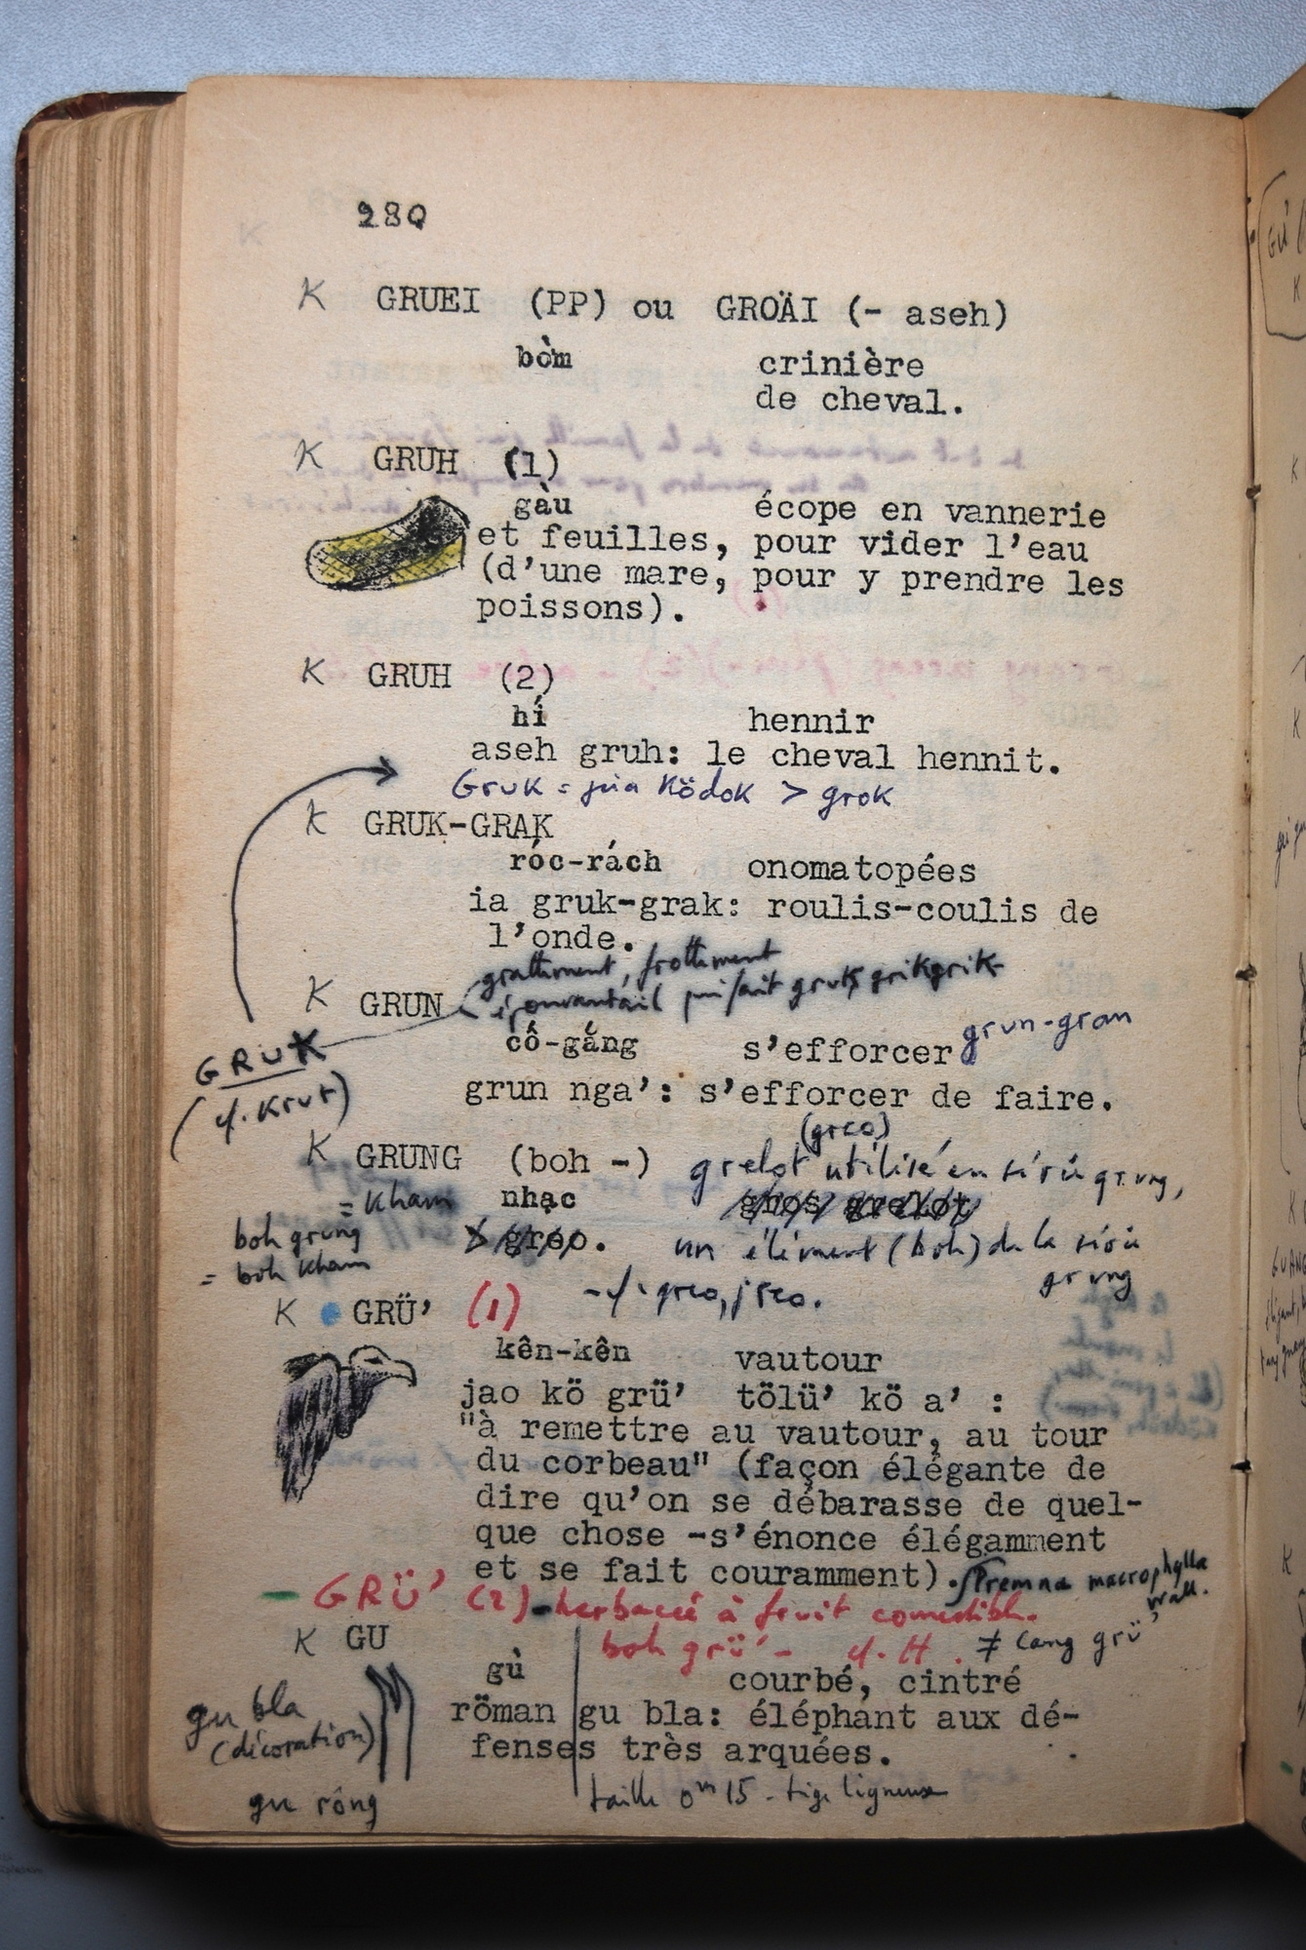 280
K GRUEI (PP) ou GROÄI (- aseh)
bờm crinière
de cheval.
K GRUH (1)
gàu écope en vannerie
et feuilles, pour vider l'eau
(d'une mare, pour y prendre les
poissons).
K GRUH (2)
hí hennir
aseh gruh: le cheval hennit.
Gruk = jua Ködok > grok
K GRUK-GRAK
róc-rách onomatopées
ia gruk-grak: roulis-coulis de
l'onde.
grattement, frottement
K GRUN épouvantail qui fait gruk grikgrik
cố-gắng s'efforcer grun-gran
GRUK
grun nga': s'efforcer de faire.
(cf. Krut)
(greo)
K GRUNG (boh -) grelot utilisé en
= Kham nhạc gros grelot
boh grung > greo. un élément (boh) de la
= boh Kham grung
- cf. greo, jreo.
K GRÜ' (1)
kên-kên vautour
jao kö grü' tölü' kö a' :
"à remettre au vautour, au tour
du corbeau" (façon élégante de
dire qu'on se débarasse de quel-
que chose -s'énonce élégamment
et se fait couramment). Premna macrophylla
Wall.
- GRÜ' (2) - herbacée à fruit comestible.
boh grü' - cf. H. ≠ cang grü'
K GU
gù courbé, cintré
gu bla röman gu bla: éléphant aux dé-
(décoration) fenses très arquées.
gu rông taille 0m15 - tige ligneuse